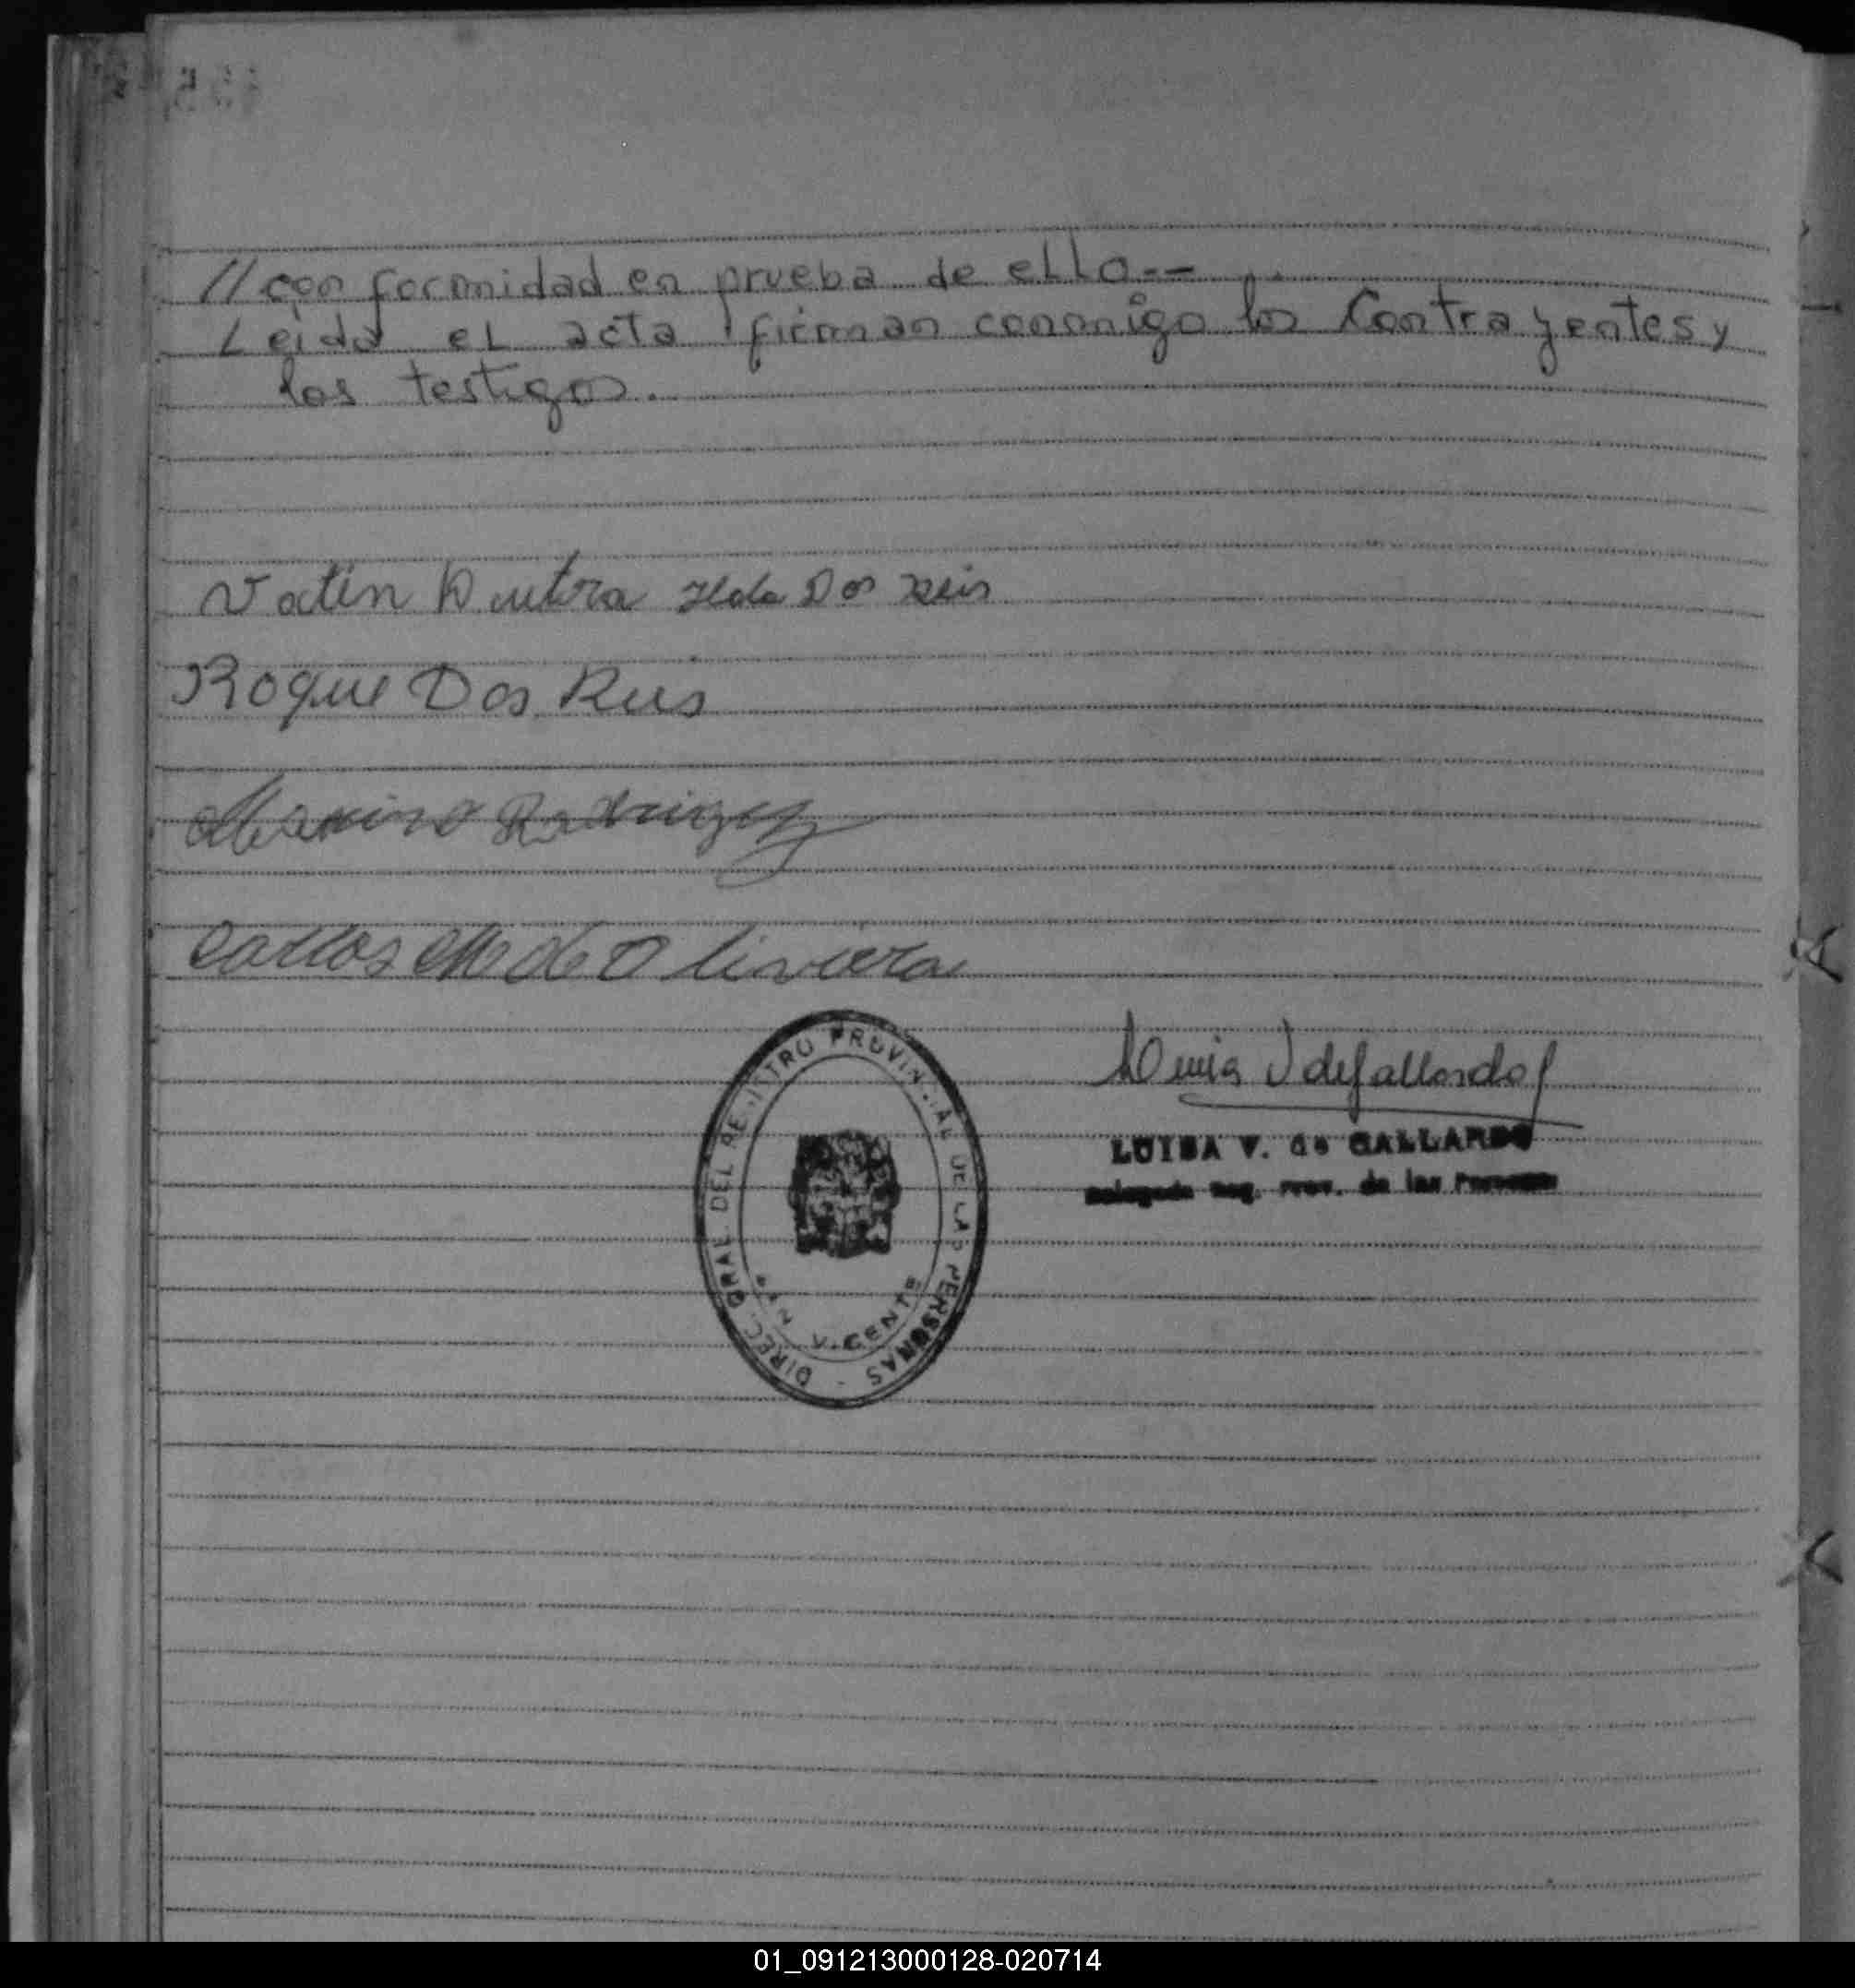 // con formidad en prueba de ello --
Leida el acta firman conmigo los Contrayentes y
los testigos.
Valin Dutra Ilda Dos Reis
Roque Dos Reis
Rodriguez
Carlos M de Olivera
Luisa V de Gallardo
LUISA V. de GALLARDO
Delegada Reg. Prov. de las Personas
DIREC. GRAL. DEL REGISTRO PROVINCIAL DE LAS PERSONAS -
SAN VICENTE
01_091213000128-020714